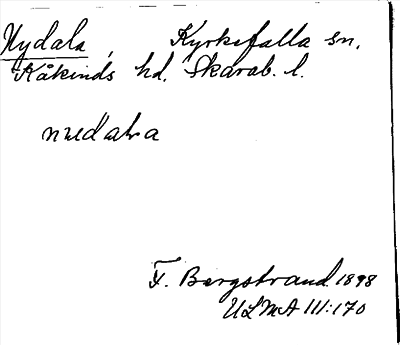 Nydala, Kyrkefalla sn,
Kåkinds hd, Skarab. l.
F. Bergstrand 1898
ULMA 111:170